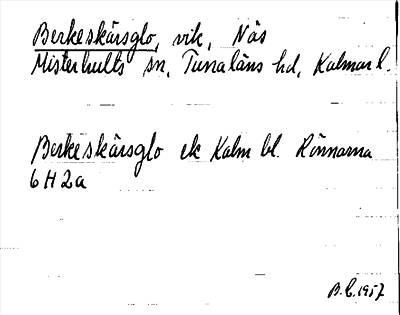 Berkeskärsglo, vik, Näs
Misterhults sn, Tunaläns hd, Kalmar l.
Berkeskärsglo ek Kalm bl. Rönnarna
6H2a
B.C. 1957